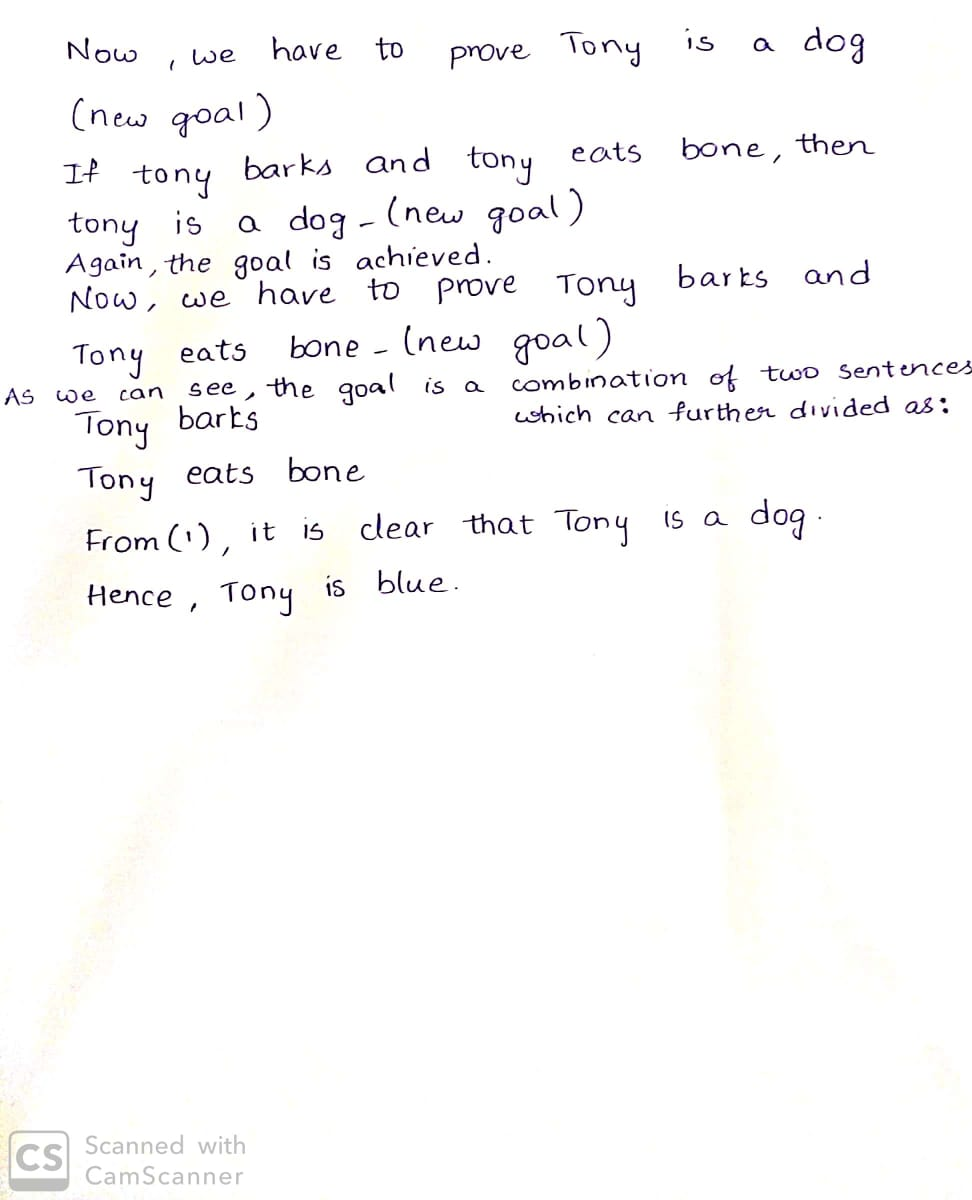 Now, we have to prove Tony is a dog
(new goal)
If tony barks and tony eats bone, then
tony is a dog - (new goal)
Again, the goal is achieved.
Now, we have to prove Tony barks and
Tony eats bone - (new goal)
As we can see, the goal is a combination of two sentences
which can further divided as:
Tony barks
Tony eats bone
From (1), it is clear that Tony is a dog.
Hence, Tony is blue.
CS
Scanned with
CamScanner